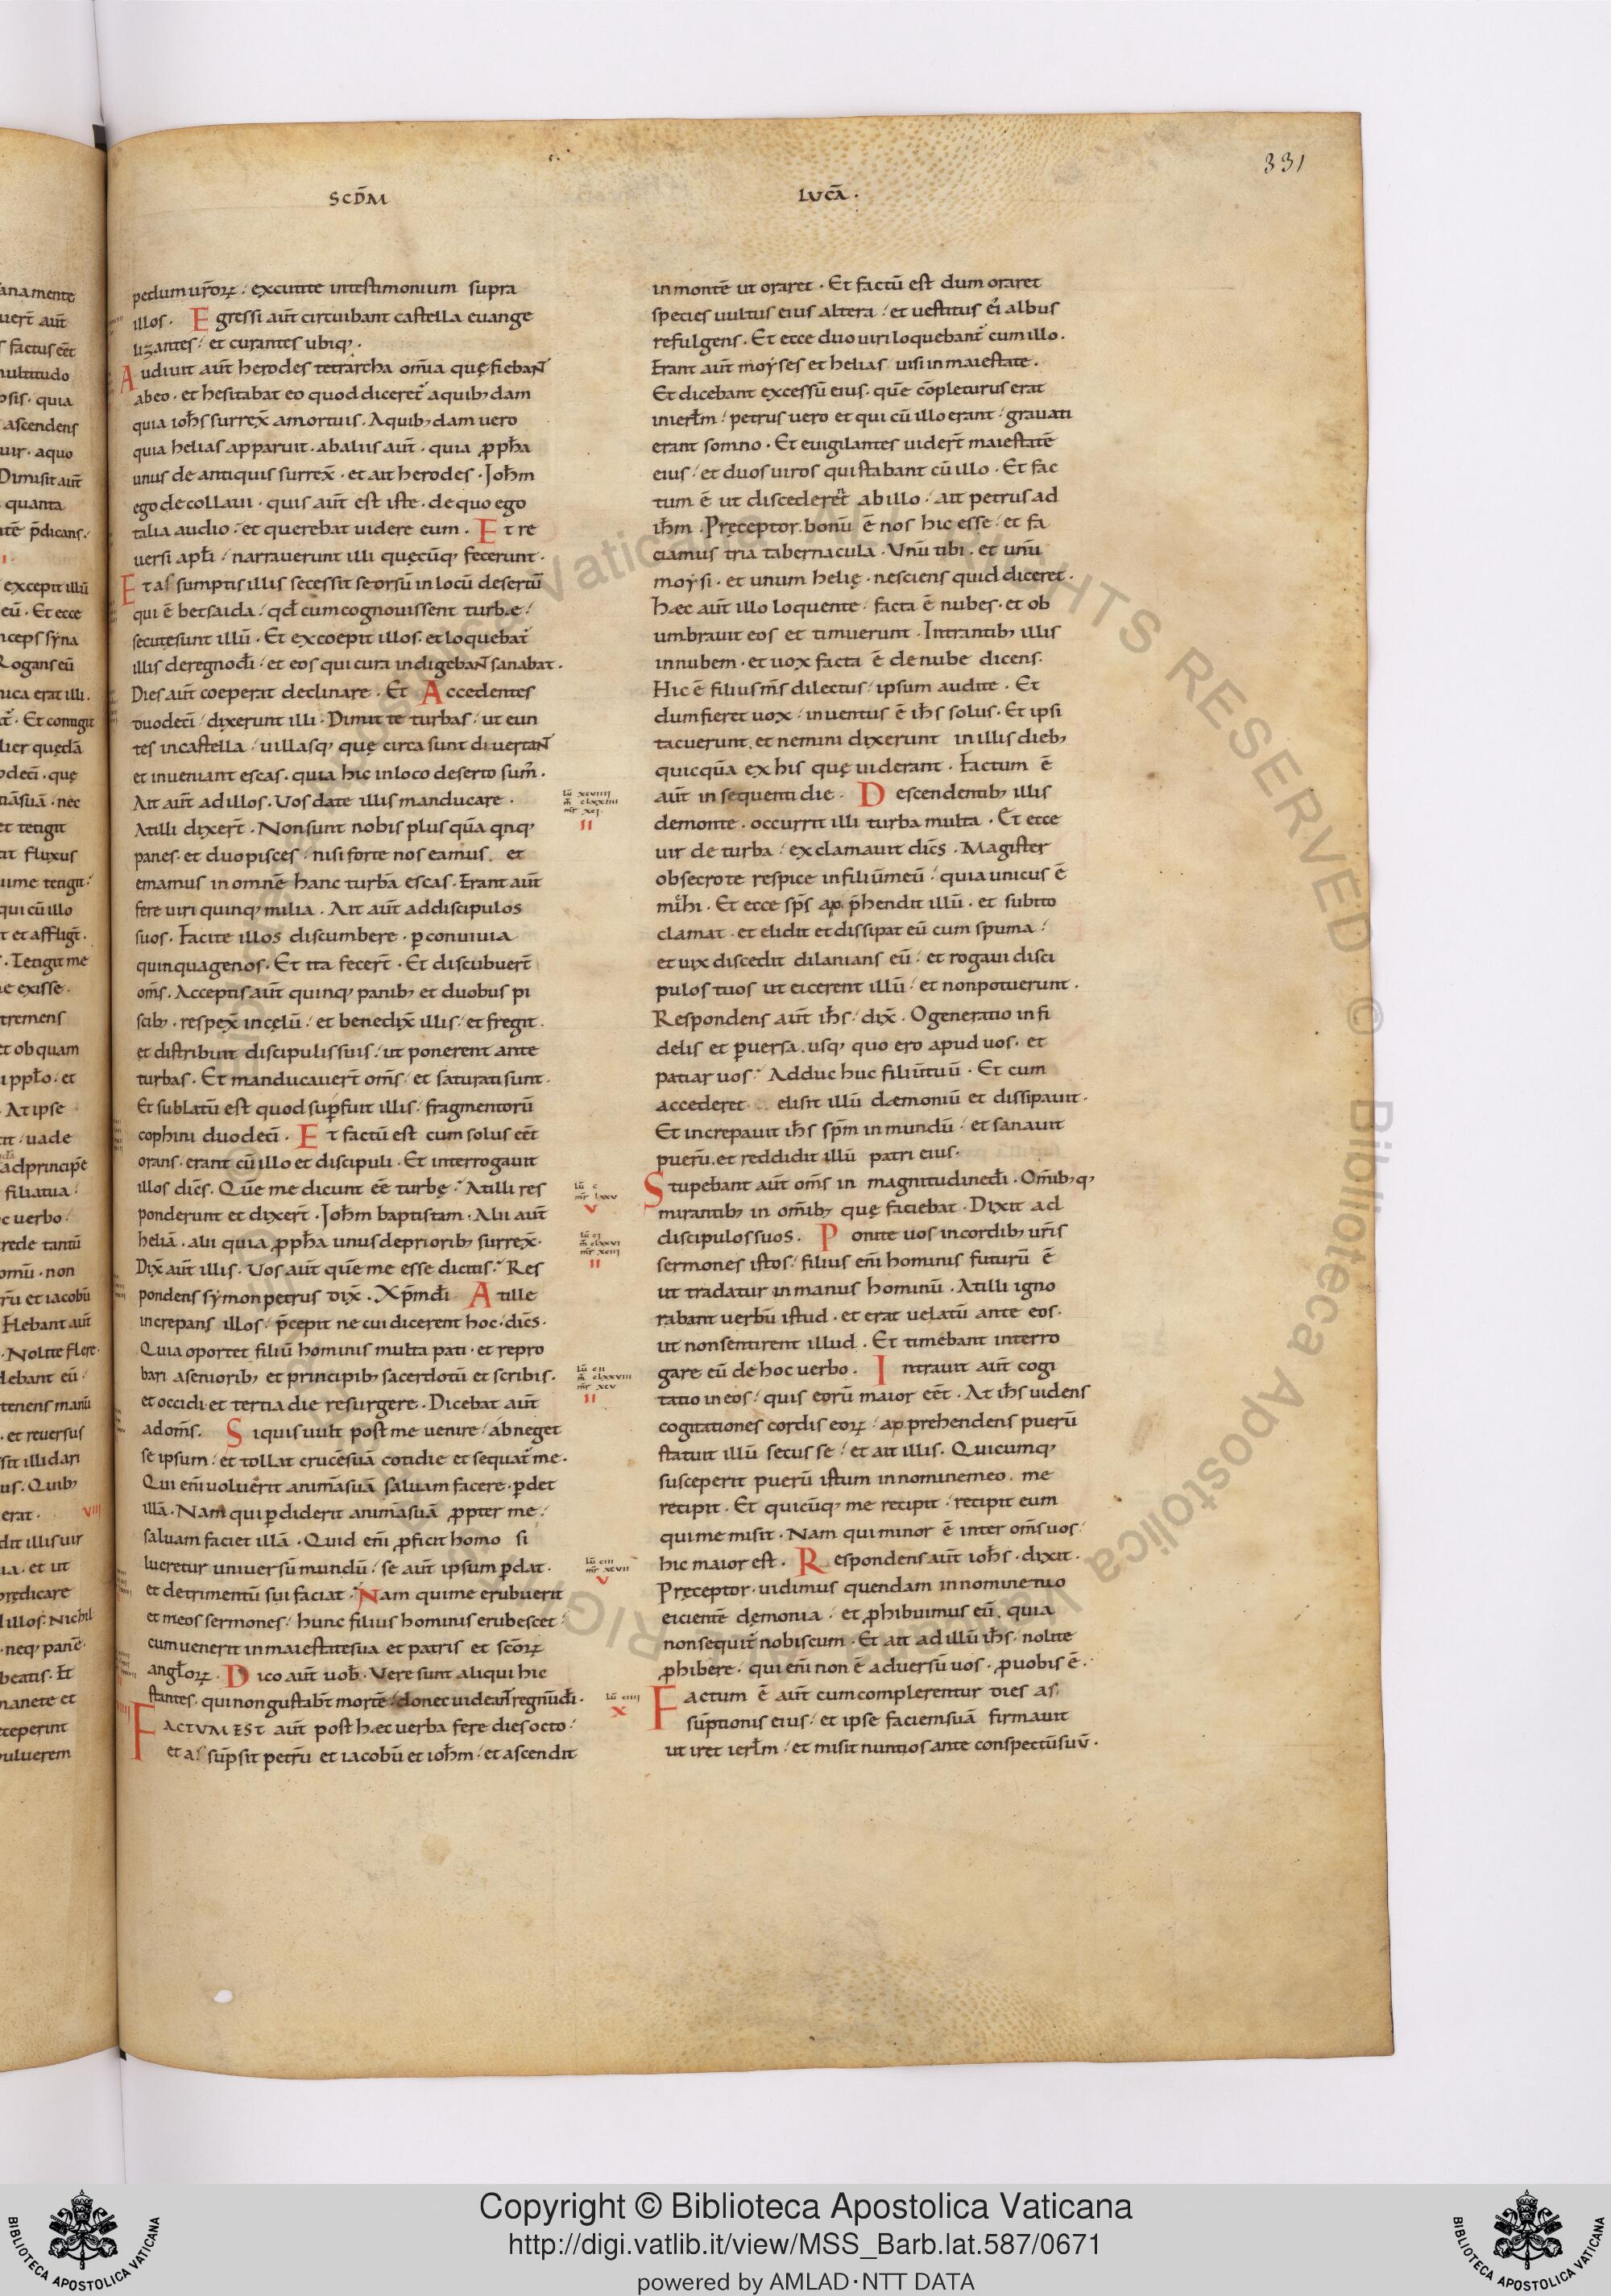 331
SCD̄M
LUCĀ.
pedum ur̄oꝝ. excutite intestimonium supra
illos. Egressi aut̄ circuibant castella euange
lizantes. et curantes ubiq;.
Audiuit aut̄ herodes tetrarcha om̄ia quę fiebant
abeo. et hesitabat eo quod diceret̄ a quib; dam
quia ioh̄s surrex̄ amortuis. Aquib; dam uero
quia helias apparuit. ab aliis aut̄. quia ꝓph̄a
unus de antiquis surrex̄. et ait herodes. Joh̄m
ego decollaui. quis aut̄ est iste. de quo ego
talia audio. et querebat uidere eum. Et re
uersi apl̄i. narrauerunt illi quęcūq; fecerunt.
Et assumptis illis secessit seorsū in locū desertū
qui ē betsaida. qd̄ cum cognouissent turbae.
secutęsunt illū. Et excoepit illos. et loquebat̄
illis deregnod̄i. et eos qui cura indigebant sanabat.
Dies aut̄ coeperat declinare. Et Accedentes
duodeci. dixerunt illi. Dimitte turbas. ut eun
tes incastella. uillasq; quę circa sunt diuertant
et inueniant escas. quia hic inloco deserto sum̄.
Ait aut̄ adillos. Uos date illis manducare.
Atilli dixer̄t. Nonsunt nobis plus quā qnq;
panes. et duo pisces. nisi forte nos eamus. et
emamus in omnē hanc turbā escas. Erant aut̄
fere uiri quinq; milia. Ait aut̄ addiscipulos
suos. Facite illos discumbere. ꝑconuiuia
quinquagenos. Et ita fecer̄t. Et discubuer̄t
om̄s. Acceptis aut̄ quinq; panib; et duobus pi
scib;. respex̄ incęlū. et benedix̄ illis. et fregit.
et distribuit discipulis suis. ut ponerent ante
turbas. Et manducauer̄t om̄s. et saturati sunt.
Et sublatū est quod suꝑfuit illis. fragmentorū
cophini duodeci. Et factū est cum solus eēt
orans. erant cū illo et discipuli. Et interrogauit
illos dic̄s. Quē me dicunt eē turbę. Atilli res
ponderunt et dixer̄t. Joh̄m baptistam. Alii aut̄
heliā. alii quia ꝓph̄a unus deprioribꝫ surrex̄.
Dix̄ aut̄ illis. Uos aut̄ quē me esse dicitis. Res
pondens symon petrus dix̄. Xp̄m d̄i. Atille
increpans illos. p̄cepit ne cui dicerent hoc. dic̄s.
Quia oportet filiū hominis multa pati. et repro
bari aseniorib; et principib; sacerdotū et scribis.
et occidi. et tertia die resurgere. Dicebat aut̄
adom̄s. Siquis uult post me uenire. abneget
se ipsum. et tollat crucēsuā cotidie et sequat̄ me.
Qui eni uoluerit animāsuā saluam facere. ꝑdet
illā. Nam qui ꝑdiderit animāsuā ꝓpter me.
saluam faciet illā. Quid eni ꝓficit homo si
lucretur uniuersū mundū. se aut̄ ipsum ꝑdat.
et detrimentū sui faciat. Nam quime erubuerit
et meos sermones. hunc filius hominis erubescet.
cum uenerit inmaiestatesua et patris et scōꝝ
angl̄oꝝ. Dico aut̄ uob̄. Vere sunt aliqui hic
stantes. qui non gustab̄t mortē. donec uideant regnūd̄i.
FACTUM EST aut̄ post haec uerba fere dies octo.
et assūpsit petrū et iacobū et ioh̄m. et ascendit
inmontē ut oraret. Et factū est dum oraret
species uultus eius altera. et uestitus ei albus
refulgens. Et ecce duo uiri loquebant̄ cum illo.
Erant aut̄ moyses et helias uisi in maiestate.
Et dicebant excessū eius. quē cōpleturus erat
inierl̄m. petrus uero et qui cū illo erant. grauati
erant somno. Et euigilantes uider̄t maiestatē
eius. et duos uiros qui stabant cū illo. Et fac
tum ē ut discederet̄ abillo. ait petrus ad
ih̄m. Pręceptor. bonū ē nos hic esse. et fa
ciamus tria tabernacula. Unū tibi. et unū
moysi. et unum helię. nesciens quid diceret.
Haec aut̄ illo loquente. facta ē nubes. et ob
umbrauit eos et timuerunt. Intrantib; illis
innubem. et uox facta ē denube dicens.
Hic ē filius m̄s dilectus. ipsum audite. Et
dum fieret uox. inuentus ē ih̄s solus. Et ipsi
tacuerunt. et nemini dixerunt in illis dieb;
quicquā ex his quę uiderant. Factum ē
aut̄ in sequenti die. Descendentib; illis
demonte. occurrit illi turba multa. Et ecce
uir de turba. exclamauit dic̄s. Magister
obsecrote respice infiliūmeū. quia unicus ē
mihi. Et ecce sp̄s app̄hendit illū. et subito
clamat. et elidit et dissipat eū cum spuma.
et uix discedit dilanians eū. et rogaui disci
pulos tuos ut eicerent illū. et nonpotuerunt.
Respondens aut̄ ih̄s. dix̄. O generatio infi
delis et ꝑuersa. usq; quo ero apud uos. et
patiar uos. Adduc huc filiūtuū. Et cum
accederet elisit illū daemoniū et dissipauit.
Et increpauit ih̄s sp̄m inmundū. et sanauit
puerū. et reddidit illū patri eius.
Stupebant aut̄ om̄s in magnitudined̄i. Om̄ib;q;
mirantib; in om̄ib; quę faciebat. Dixit ad
discipulos suos. Ponite uos incordib; ur̄is
sermones istos. filius eni hominis futurū ē
ut tradatur inmanus hominū. Atilli igno
rabant uerbū istud. et erat uelatū ante eos.
ut nonsentirent illud. Et timebant interro
gare eū de hoc uerbo. Intrauit aut̄ cogi
tatio ineos. quis eorū maior eēt. At ih̄s uidens
cogitationes cordis eoꝝ. apprehendens puerū
statuit illū secus se. et ait illis. Quicumq;
susceperit puerū istum innominemeo. me
recipit. Et quicūq; me recipit. recipit eum
quime misit. Nam qui minor ē inter om̄s uos.
hic maior est. Respondens aut̄ ioh̄s. dixit.
Pręceptor. uidimus quendam innominetuo
eicientē dęmonia. et ꝓhibuimus eū. quia
nonsequit̄ nobiscum. Et ait ad illū ih̄s. nolite
ꝓhibere. qui eni non ē aduersū uos. ꝓuobis ē.
Factum ē aut̄ cumcomplerentur dies as
sūptionis eius. et ipse faciemsuā firmauit
ut iret ierl̄m. et misit nuntios ante conspectūsuū.
Copyright © Biblioteca Apostolica Vaticana
http://digi.vatlib.it/view/MSS_Barb.lat.587/0671
powered by AMLAD·NTT DATA